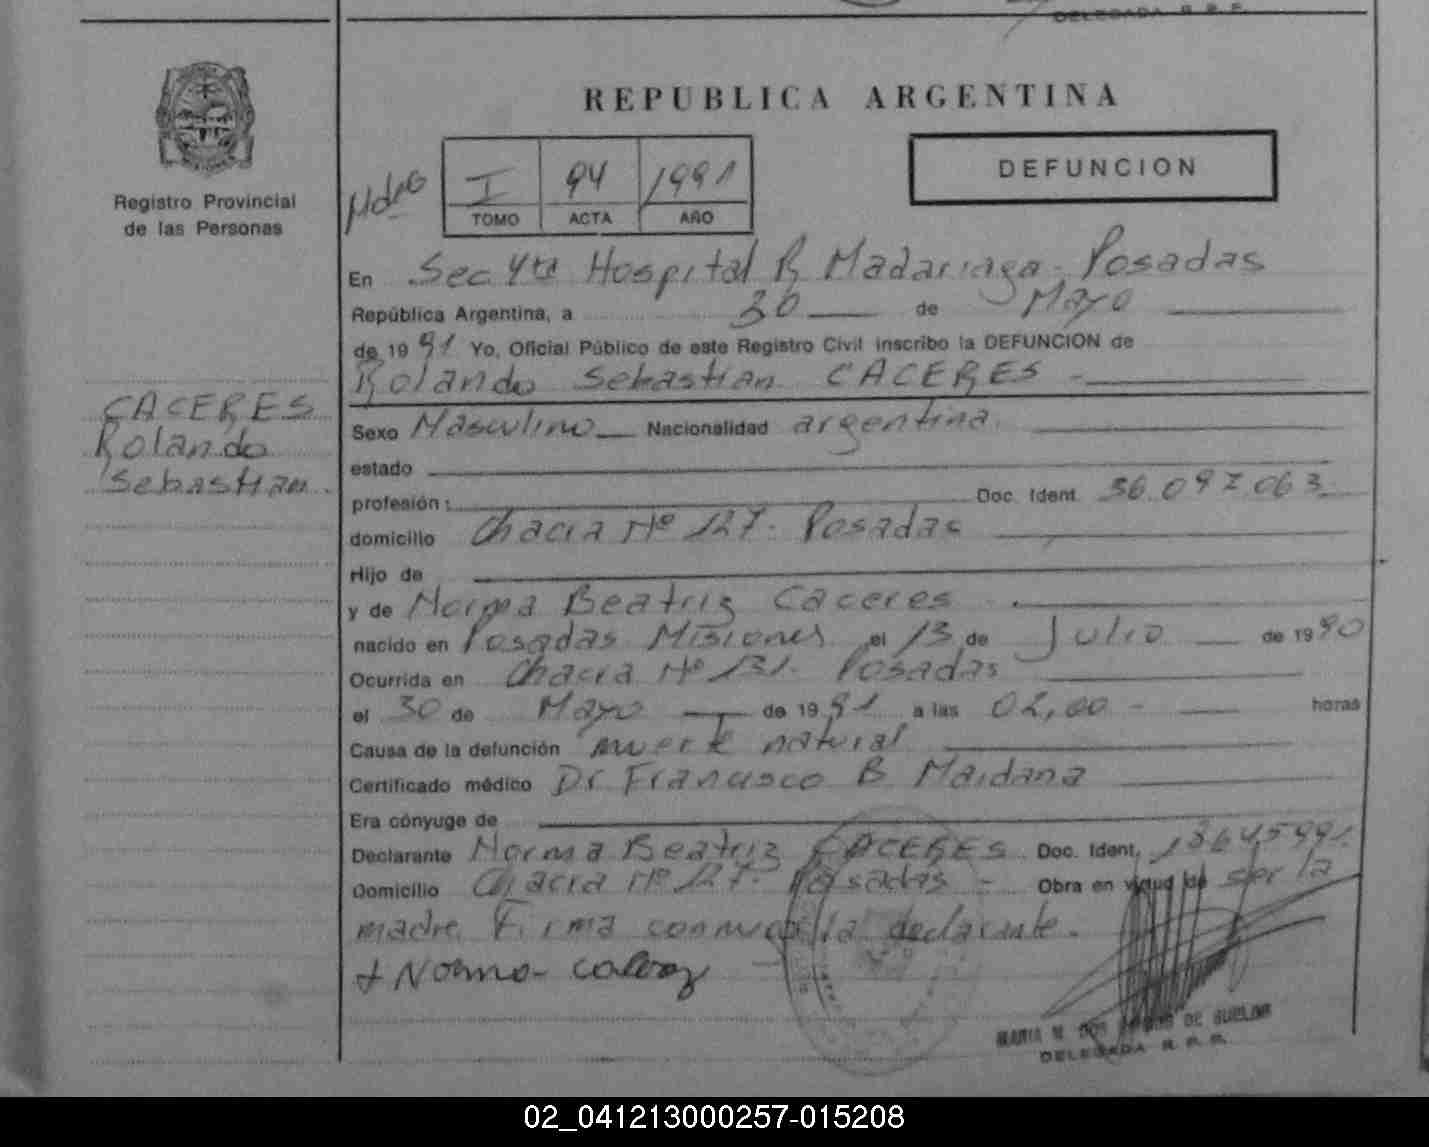 DELEGADA R. P. P.
REPUBLICA ARGENTINA
Registro Provincial
de las Personas
I 94 1991
TOMO ACTA AÑO
DEFUNCION
En Sec 4ta Hospital R Madariaga - Posadas
República Argentina, a 30 de Mayo
de 19 91 Yo, Oficial Público de este Registro Civil inscribo la DEFUNCION de
Rolando Sebastian CACERES -
CACERES
Rolando
Sebastian.
Sexo Masculino Nacionalidad argentina.
estado
profesión: Doc. Ident. 36.097.063
domicilio Chacra Nº 127 - Posadas
Hijo de
y de Norma Beatriz Caceres
nacido en Posadas Misiones el 13 de Julio de 19 90
Ocurrida en Chacra Nº 131 - Posadas
el 30 de Mayo de 19 91 a las 02,00 - horas
Causa de la defunción muerte natural
Certificado médico Dr Francisco B Maidana
Era cónyuge de
Declarante Norma Beatriz CACERES Doc. Ident. 13645991.
Domicilio Chacra Nº 127 - Posadas - Obra en virtud de ser la
madre Firma conmigo la declarante.
+ Norma
MARIA M. DOS DE
DELEGADA R. P. P.
02_041213000257-015208